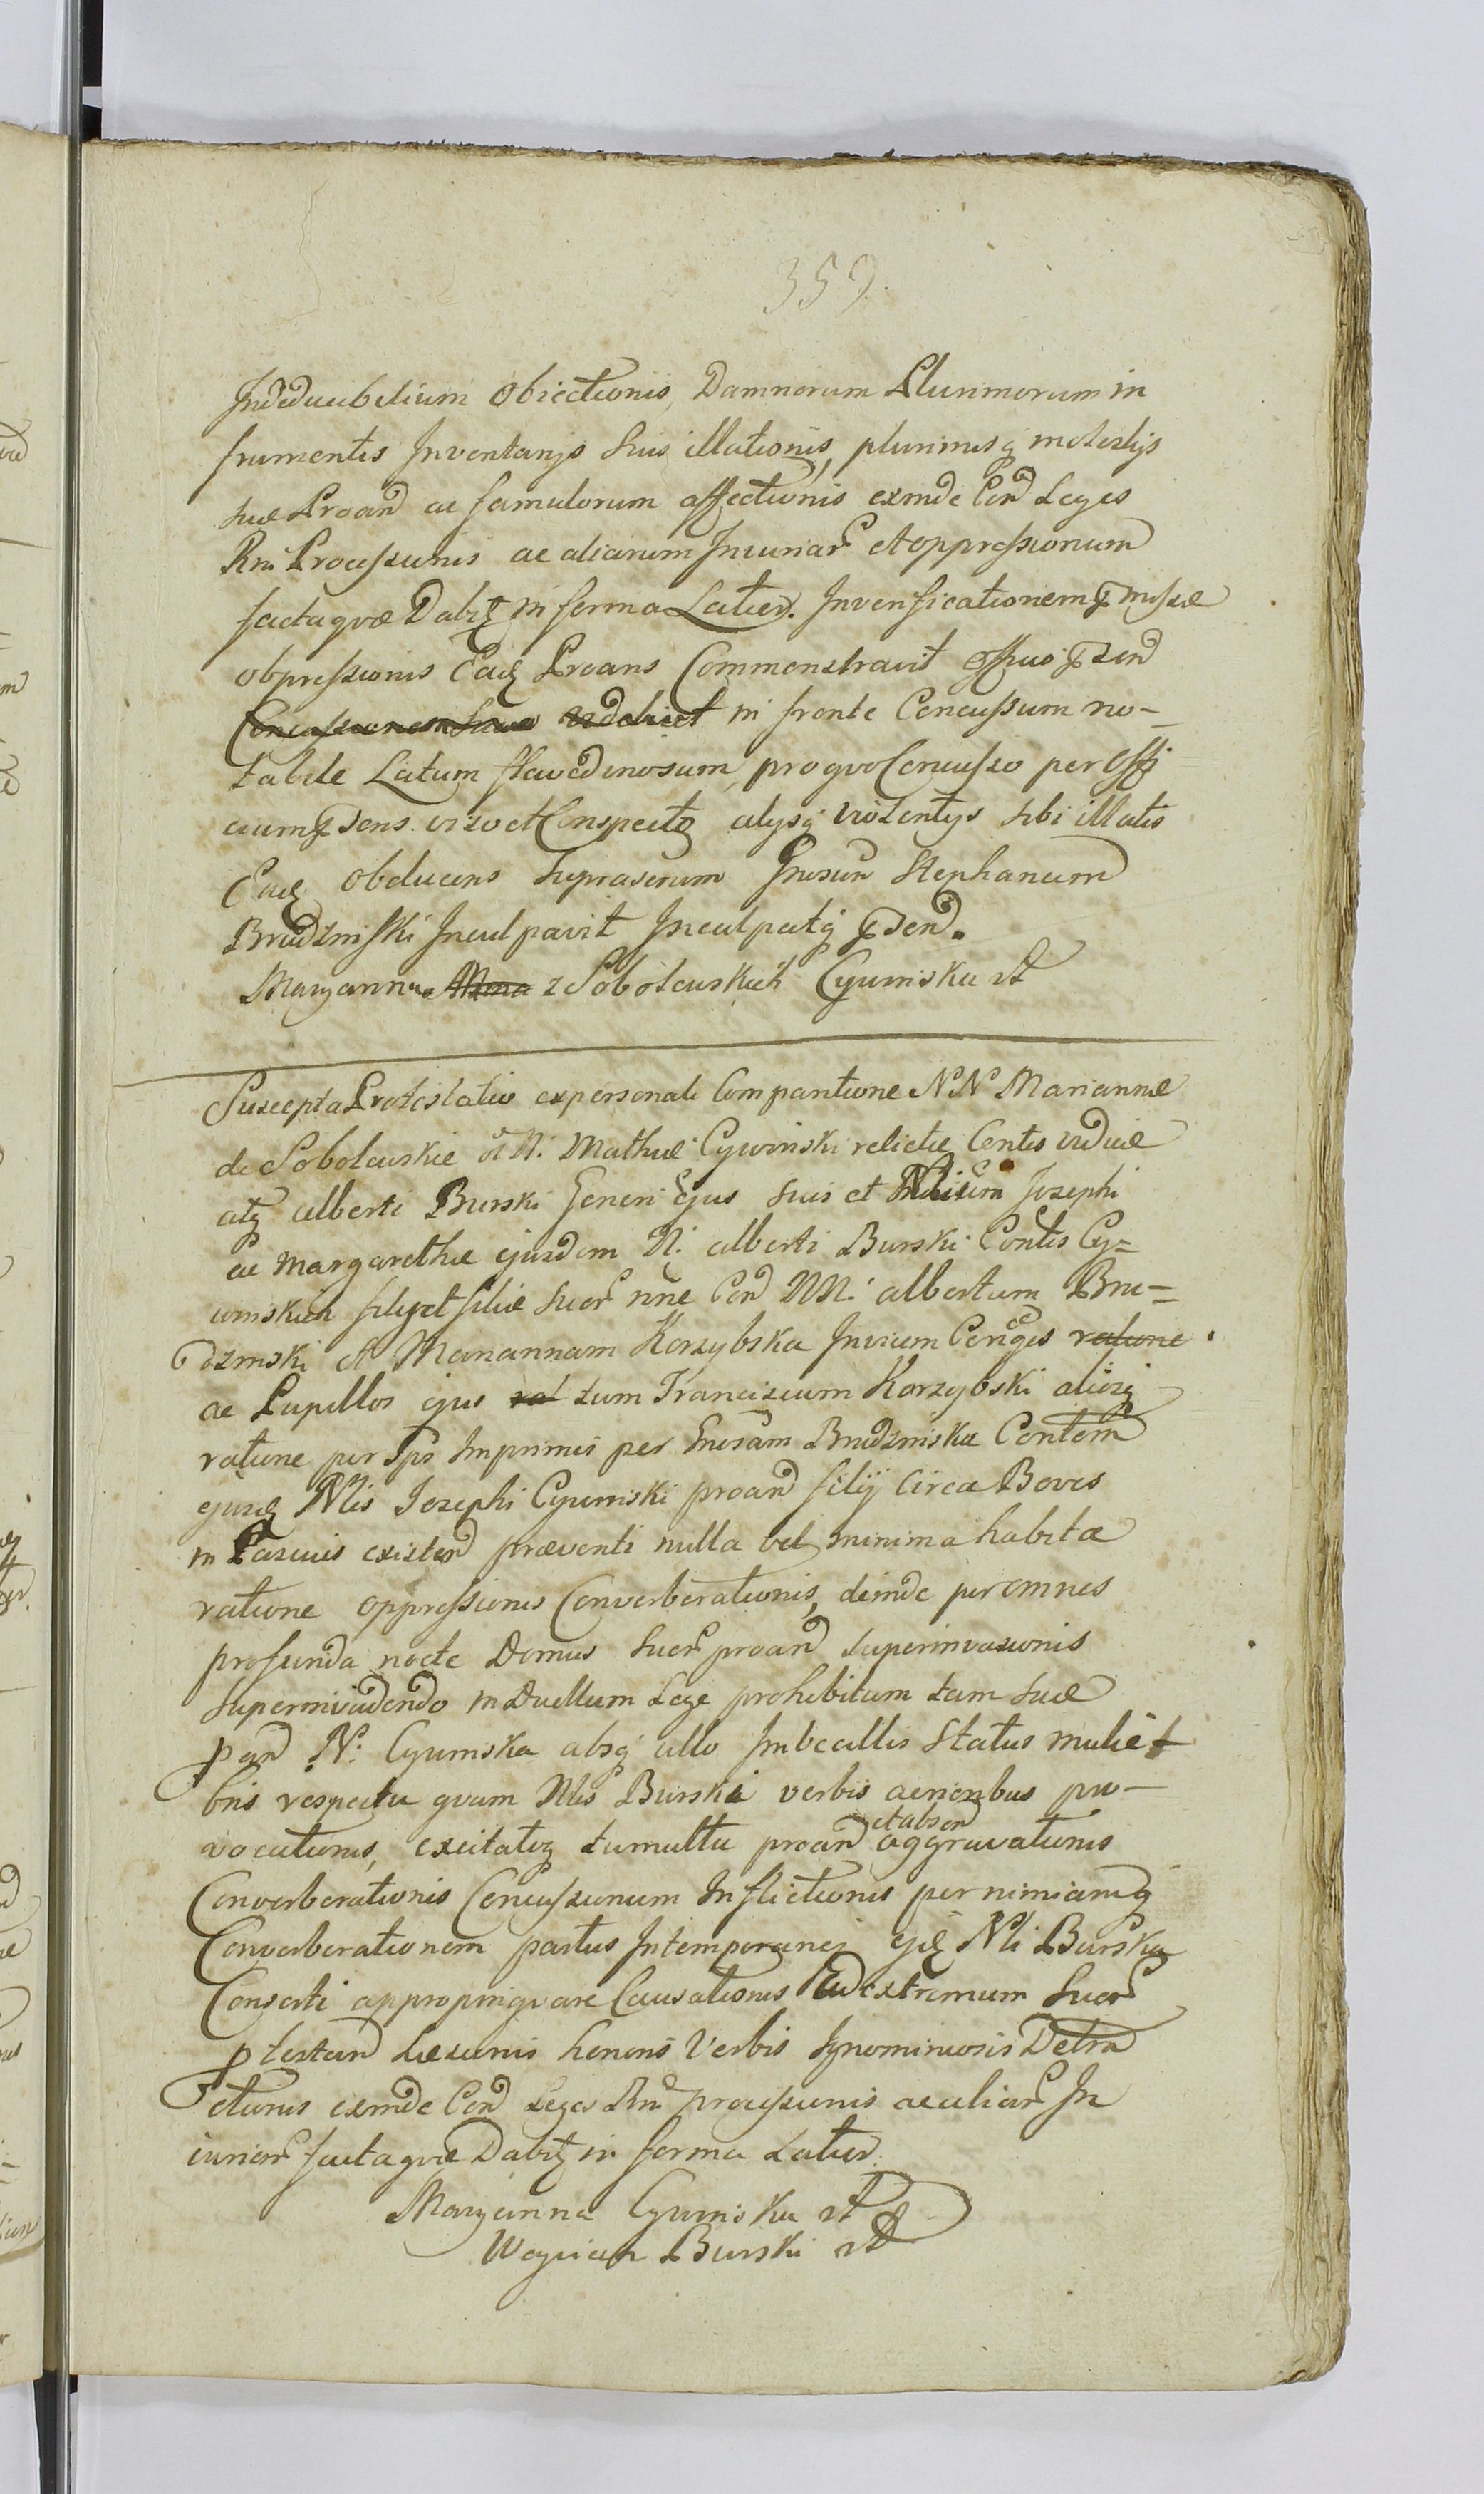 359.
Indeducibilium Obiectionis, Damnorum Plurimorum in
frumentis Inventarijs suis illationis, plurimisq molestijs
suæ Proand ac famulorum affectionis exinde Con Leges
Rni Processionis ac aliarum Iniuriar et oppressionum
factaque Dabitq in forma Latiori. In verificationemq
obpressionis Eadq Proans Commonstravit
Concussionem videlicet in fronte Concussum no-
tabile Latum flavedinosum, pro quo Concusso per Offi
cium sens. viso et Conspecto alysq violentys sibi illatis
Eadq obducens supraserum Gnosum Stephanum
Brudzinski Inculpavit Inculpatq
Maryanna z Sobolewskich Cywinska
Suscepta Protestatio ex personali Comparitione NN Mariannæ
de Sobolewskie N: Mathiæ Cywinski relictæ Contis viduæ
atq alberti Burski Generi Ejus suis et Josephi
ac Margarethæ ejusdem N: alberti Burski Contis Cy=
winskich filij et filiæ suor nne Con NN: albertum Bru=
dzinski et Mariannam Korzybska Invicem Conges ratione
ac Pupillos ejus rat tum Franciscum Korzybski aliosq
ratione per Ips Imprimis per Gnosam Brudzinska Contem
ejusdq Nlis Josephi Cywinski proand filij circa Boves
in Pascuis existen præventi nulla vel minima habita
ratione oppressionis Converberationis, deinde per omnes
profunda nocte Domus suor proand superinvasionis
superinvadendo in Duellum Lege prohibitum tam suæ
pand N: Cywinska absq ullo Imbecillis Status mulie
bris respectu quam Nlis Burski verbis acrioribus pro-
vocationis, excitatoq tumultu proand aggravationis
Converberationis Concussionum Inflictionis per nimiamq
Converberationem partus Intemporanej Nli Burska
Consorti appropinquare Causationis Ad extremum suor
ptestan Læsionis honoris Verbis Ignominiosis Detra
ctionis exinde Con Leges Rni processionis ac aliar In
iuriar factaque Dabitq in forma Latiori.
Maryanna Cywinska
Woyciech Burski